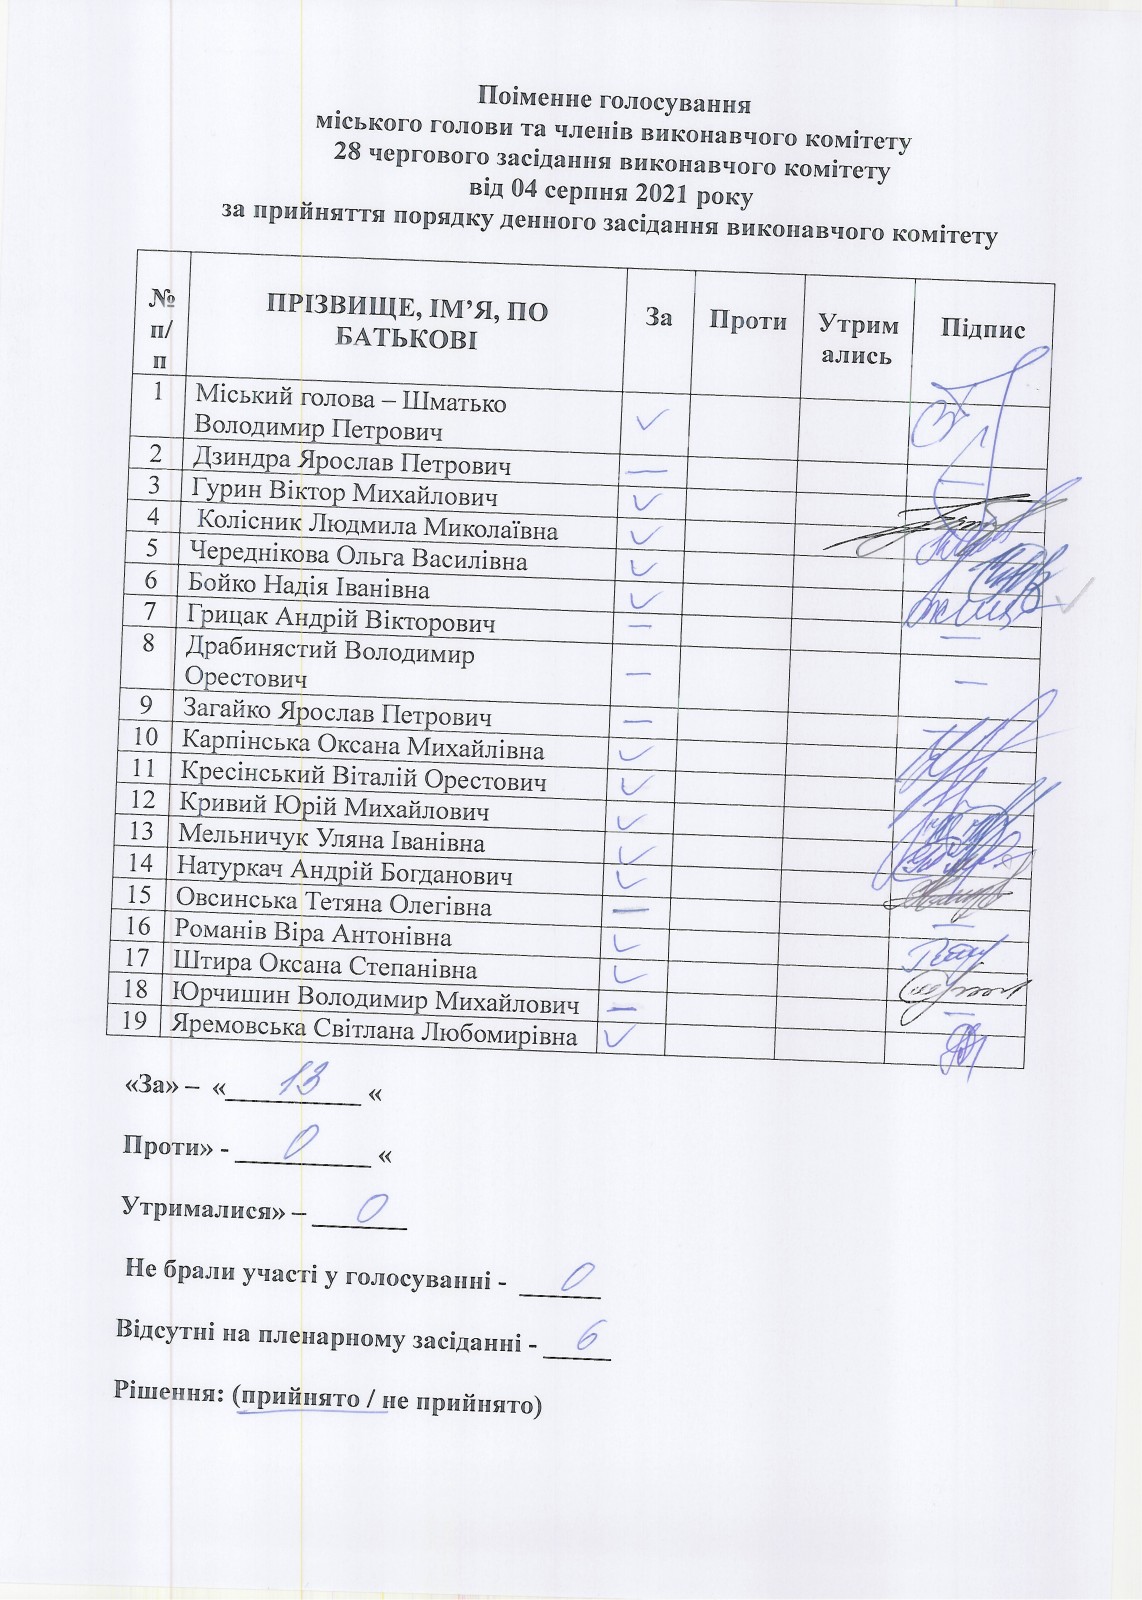 Поіменне голосування
міського голови та членів виконавчого комітету
28 чергового засідання виконавчого комітету
від 04 серпня 2021 року
за прийняття порядку денного засідання виконавчого комітету
№ п/п ПРІЗВИЩЕ, ІМ’Я, ПО БАТЬКОВІ За Проти Утримались Підпис
1 Міський голова – Шматько
Володимир Петрович ✓
2 Дзиндра Ярослав Петрович —
3 Гурин Віктор Михайлович ✓
4 Колісник Людмила Миколаївна ✓
5 Череднікова Ольга Василівна ✓
6 Бойко Надія Іванівна ✓
7 Грицак Андрій Вікторович — —
8 Драбинястий Володимир
Орестович — —
9 Загайко Ярослав Петрович —
10 Карпінська Оксана Михайлівна ✓
11 Кресінський Віталій Орестович ✓
12 Кривий Юрій Михайлович ✓
13 Мельничук Уляна Іванівна ✓
14 Натуркач Андрій Богданович ✓
15 Овсинська Тетяна Олегівна — —
16 Романів Віра Антонівна ✓
17 Штира Оксана Степанівна ✓
18 Юрчишин Володимир Михайлович — —
19 Яремовська Світлана Любомирівна ✓
«За» – « 13 «
Проти» - 0 «
Утрималися» – 0
Не брали участі у голосуванні - 0
Відсутні на пленарному засіданні - 6
Рішення: (прийнято / не прийнято)